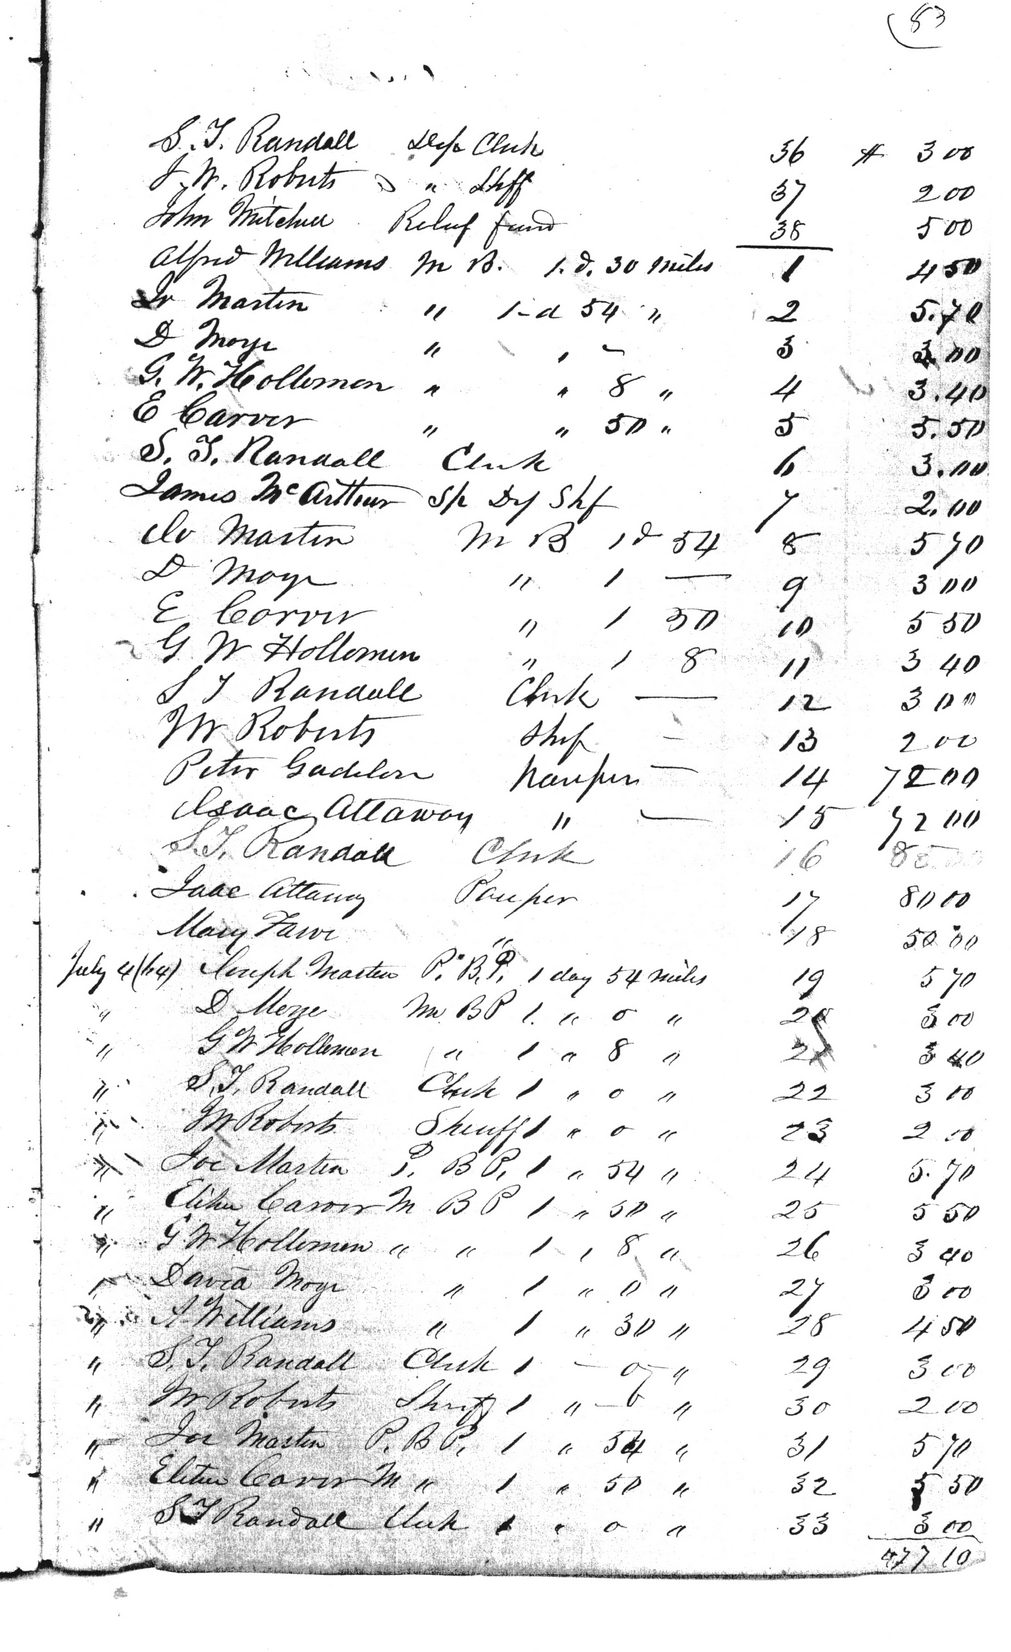 83
S. T. Randall Dep Clerk 36 $ 3 00
J. W. Roberts " Shff 37 2 00
John Mitchell Relief fund 38 5 00
Alfred Williams M B. 1. d. 30 miles 1 4 50
Jo Martin " 1 - d 54 " 2 5.70
D Moye " " - 3 3 00
G. W. Hollomon " " 8 " 4 3.40
E Carver " " 50 " 5 5.50
S. T. Randall Clerk 6 3.00
James McArthur Sp Dy Shf 7 2.00
Jo Martin M B 1 d 54 8 5 70
D Moye " 1 — 9 3 00
E Carver " 1 50 10 5 50
G W Hollomon " 1 8 11 3 40
S T Randall Clerk — 12 3 00
JW Roberts Shf - 13 2 00
Peter pauper — 14 72 00
Isaac Attaway " — 15 72 00
S. T. Randall Clerk 16
Isaac Attaway Pauper 17 80 00
Mary " 18 50.00
July 4 (64) Joseph Martin P. B. P. 1 day 54 miles 19 5 70
" D Moye M BP 1. " 0 " 20 3 00
" G W Hollomon " 1 " 8 " 21 3 40
" S. T. Randall Clerk 1 " 0 " 22 3 00
" JW Roberts Sheriff 1 " 0 " 23 2 00
" Joe Martin P. B P. 1 " 54 " 24 5.70
" Elihu Carver M B P 1 " 50 " 25 5 50
" G W Hollomon " " 1 " 8 " 26 3 40
" David Moye " 1 " 0 " 27 3 00
" A Williams " 1 " 30 " 28 4 50
" S. T. Randall Clerk 1 - 0 - " 29 3 00
" JW Roberts Sheriff 1 " - 0 " 30 2 00
" Joe Martin P. B P. 1 " 54 " 31 5 70
" Elihu Carver M " 1 " 50 " 32 5 50
" S T Randall Clerk 1 " 0 " 33 3 00
477 10